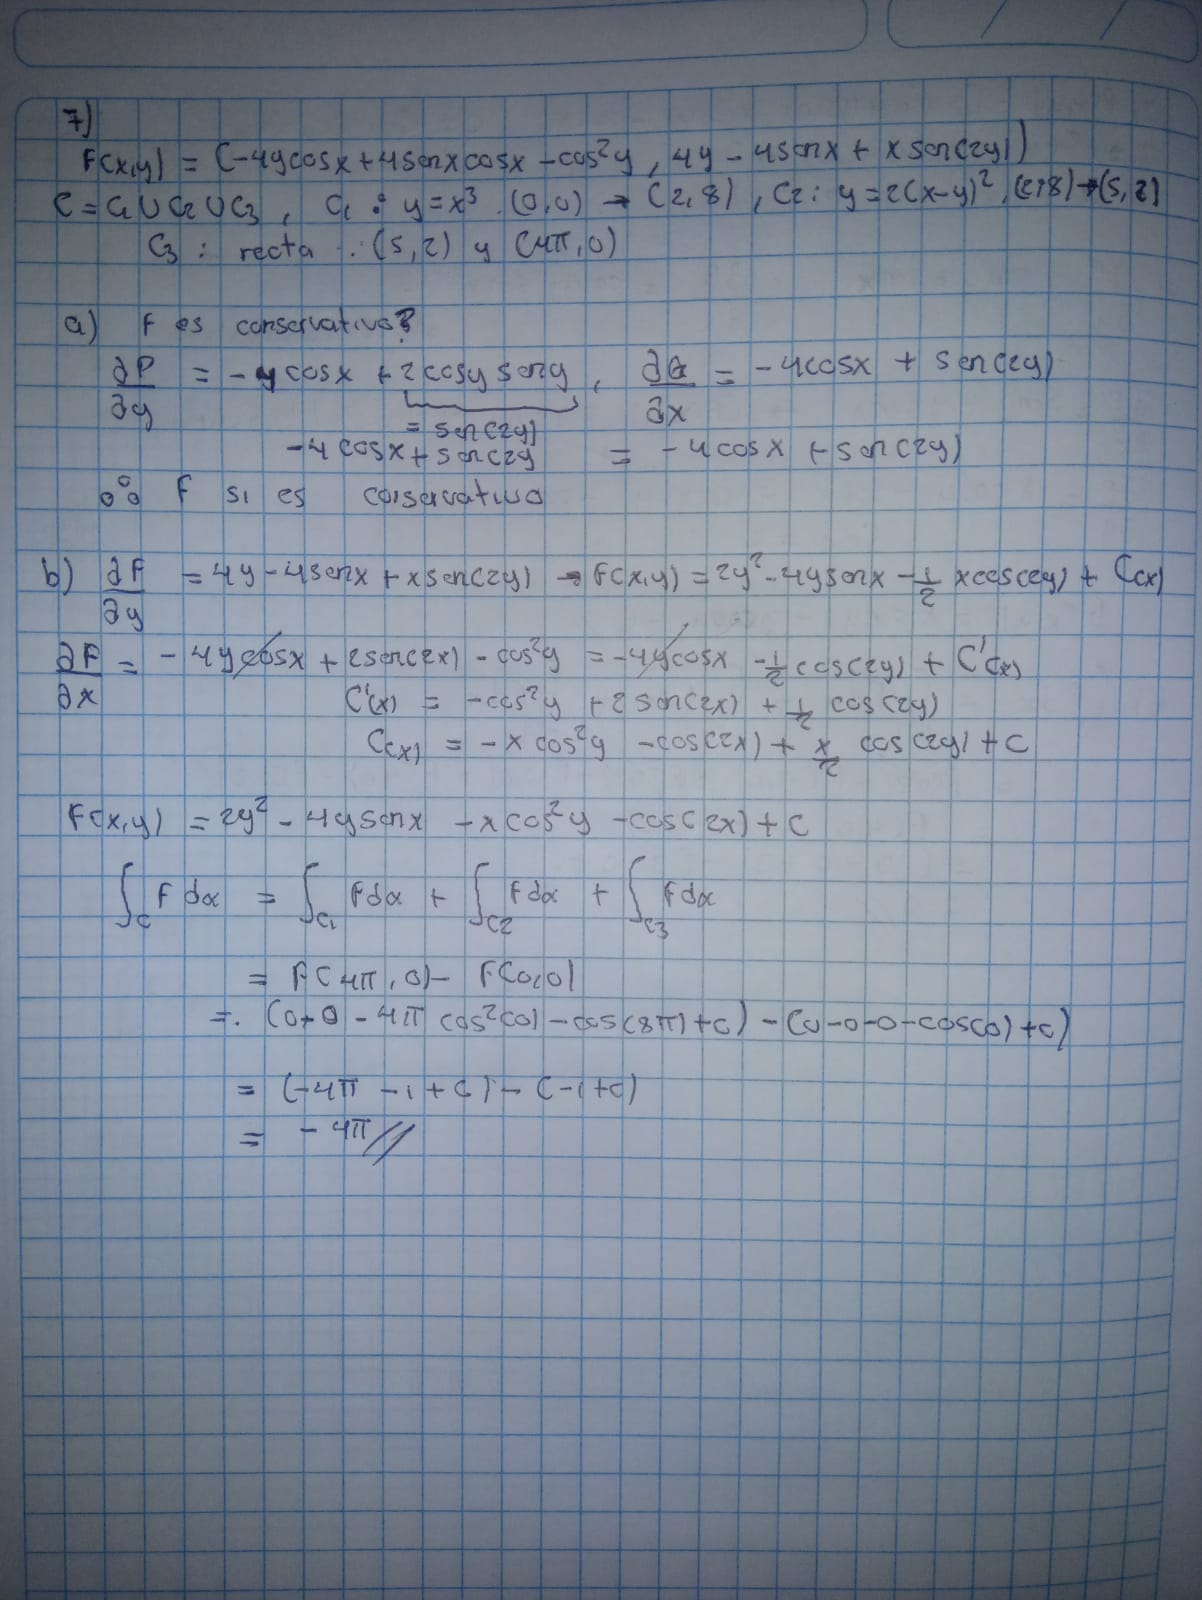 7)
F(x,y) = (-4ycosx+4senxcosx-cos²y, 4y-4senx+xsen(2y))
C = C1 U C2 U C3, C1: y=x³. (0,0) → (2,8), C2: y=2(x-y)², (2,8)→(5,2)
C3: recta : (5,2) y (4π,0)
a) F es conservativo?
∂P/∂y = -4cosx + 2cosy seny, ∂Q/∂x = -4cosx + sen(2y)
= sen(2y)
-4cosx+sen(2y = -4cosx +sen(2y)
∴ F si es conservativo
b) ∂F/∂y = 4y-4senx+xsen(2y) → F(x,y) = 2y²-4ysenx-1/2 xcos(2y) + C(x)
∂F/∂x = -4ycosx + 2sen(2x) - cos²y = -4ycosx -1/2 cos(2y) + C'(x)
C'(x) = -cos²y +2sen(2x) + 1/2 cos(2y)
C(x) = -x cos²y -cos(2x) + x/2 cos(2y) + C
F(x,y) = 2y² - 4ysenx - xcos²y - cos(2x) + C
∫C F dα = ∫C1 Fdα + ∫C2 Fdα + ∫C3 Fdα
= F(4π,0) - F(0,0)
=. (0+0-4π cos²(0)-cos(8π)+c) - (0-0-0-cos(0)+c)
= (-4π -1+c) - (-1+c)
= -4π//